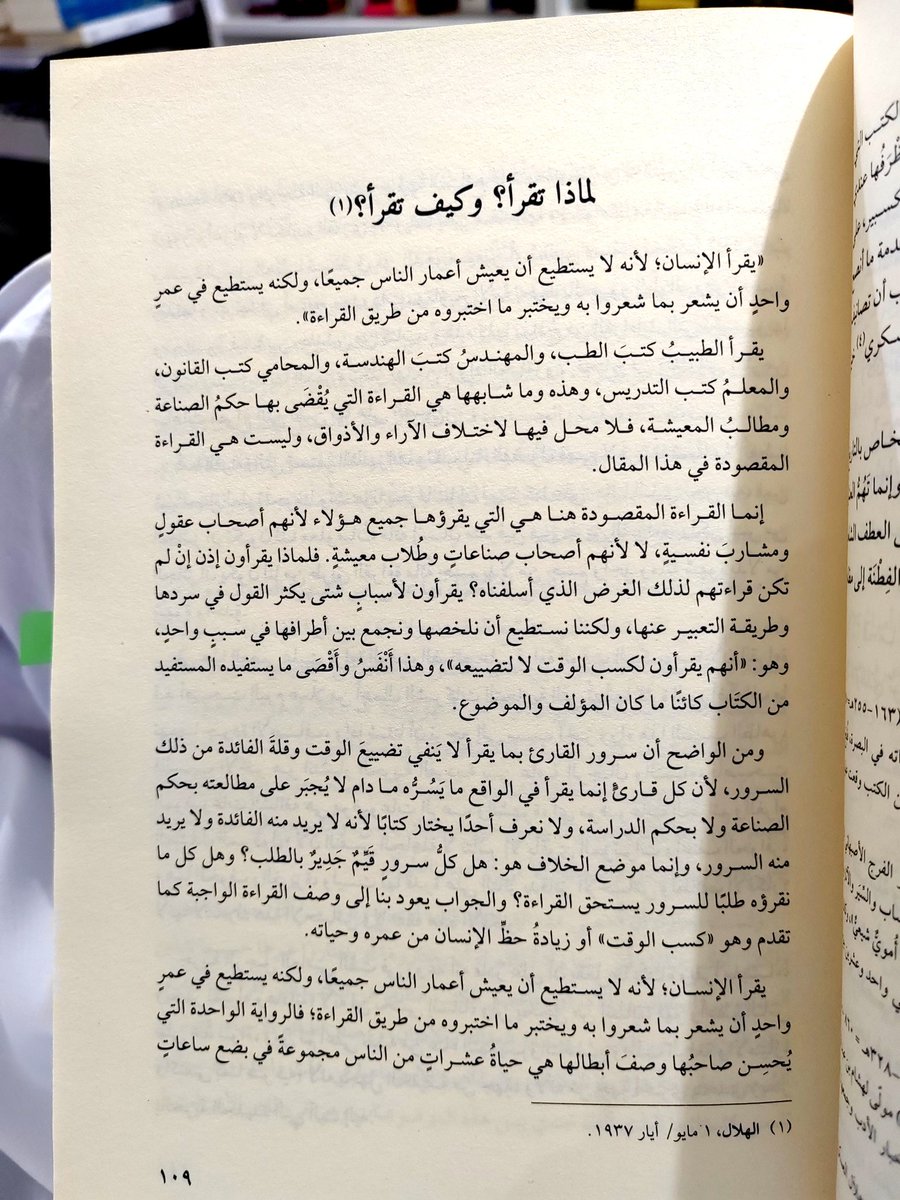 لماذا تقرأ؟ وكيف تقرأ؟(١)
«يقرأ الإنسان؛ لأنه لا يستطيع أن يعيش أعمار الناس جميعًا، ولكنه يستطيع في عمرٍ
واحدٍ أن يشعر بما شعروا به ويختبر ما اختبروه من طريق القراءة».
يقـرأ الطبيبُ كتـبَ الطب، والمهندسُ كتبَ الهندسة، والمحامي كتب القانون،
والمعلـمُ كتب التدريس، وهذه وما شابهها هي القراءة التي يُقْضَى بها حكمُ الصناعة
ومطالـبُ المعيشة، فـلا محـل فيهـا لاختـلاف الآراء والأذواق، وليسـت هـي القراءة
المقصودة في هذا المقال.
إنمـا القـراءة المقصـودة هنـا هـي التي يقرؤهـا جميع هـؤلاء لأنهم أصحاب عقولٍ
ومشاربَ نفسـيةٍ، لا لأنهم أصحاب صناعاتٍ وطُلاب معيشةٍ. فلماذا يقرأون إذن إنْ لم
تكن قراءتهم لذلك الغرض الذي أسلفناه؟ يقرأون لأسبابٍ شتى يكثر القول في سردها
وطريقـة التعبيـر عنها، ولكننا نسـتطيع أن نلخصها ونجمع بين أطرافها في سـببٍ واحدٍ،
وهو: «أنهم يقرأون لكسب الوقت لا لتضييعه»، وهذا أَنْفَسُ وأَقْصَى ما يستفيده المستفيد
من الكتَاب كائنًا ما كان المؤلف والموضوع.
ومن الواضح أن سـرور القارئ بما يقرأ لا يَنفي تضييعَ الوقت وقلةَ الفائدة من ذلك
السرور، لأن كل قـارئ إنما يقرأ في الواقع ما يَسُرُّه مـا دام لا يُجبَر على مطالعته بحكم
الصناعة ولا بحكم الدراسة، ولا نعرف أحدًا يختار كتابًا لأنه لا يريد منه الفائدة ولا يريد
منه السرور، وإنما موضع الخلاف هو: هل كلُّ سـرورٍ قَيِّمٌ جَدِيرٌ بالطلب؟ وهل كل ما
نقرؤه طلبًا للسرور يستحق القراءة؟ والجواب يعود بنا إلى وصف القراءة الواجبة كما
تقدم وهو «كسب الوقت» أو زيادةُ حظِّ الإنسان من عمره وحياته.
يقرأ الإنسـان؛ لأنه لا يسـتطيع أن يعيش أعمار الناس جميعًا، ولكنه يستطيع في عمرٍ
واحدٍ أن يشعر بما شعروا به ويختبر ما اختبروه من طريق القراءة؛ فالرواية الواحدة التي
يُحسِـن صاحبُها وصفَ أبطالها هي حياةُ عشـراتٍ من الناس مجموعةً في بضع ساعاتٍ
(١) الهلال، ١ مايو/ أيار ١٩٣٧.
١٠٩